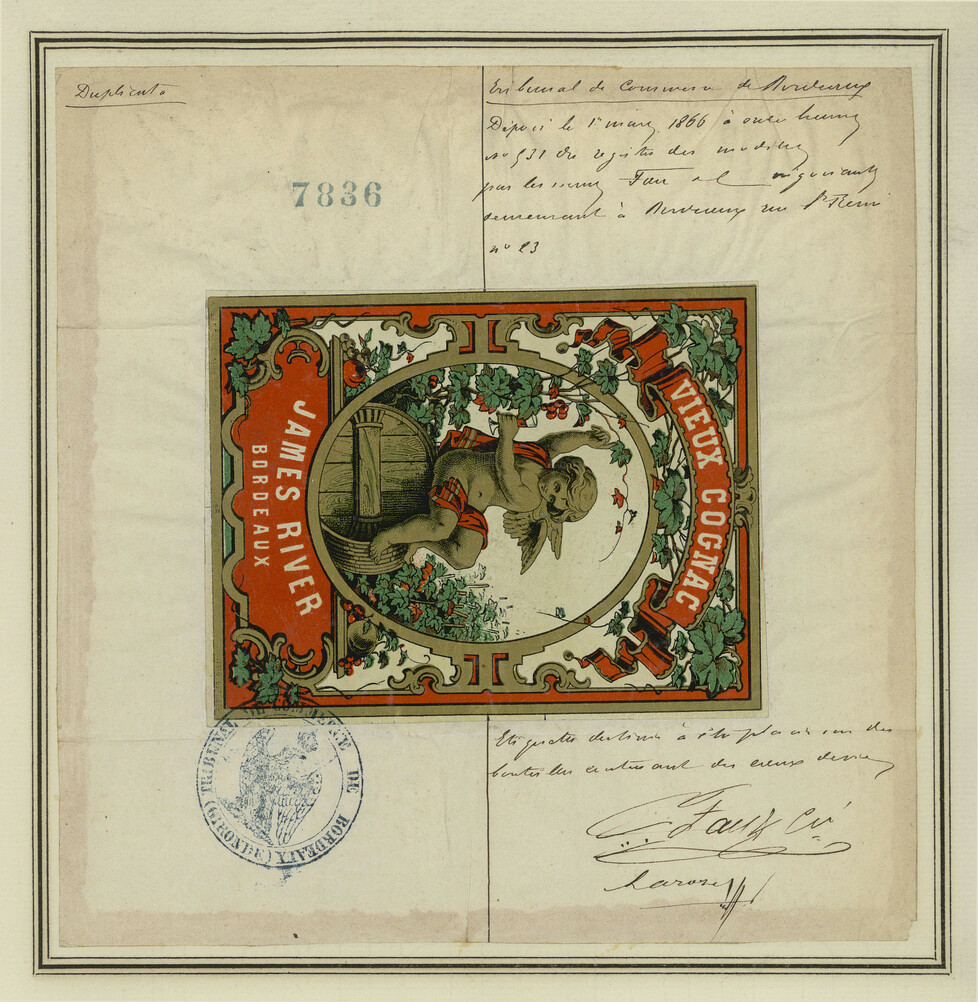 Duplicata
7836
Tribunal de Commerce de Bordeaux
Déposé le 1er mars 1866 à onze heures
no 531 du registre des modèles
par les sieurs négociants
demeurant à Bordeaux rue St Remi
no 23
VIEUX COGNAC
JAMES RIVER
BORDEAUX
TRIBUNAL DE COMMERCE DE BORDEAUX (GIRONDE)
Etiquette destinée à être placée sur des
bouteilles contenant des
& Cie
Larose